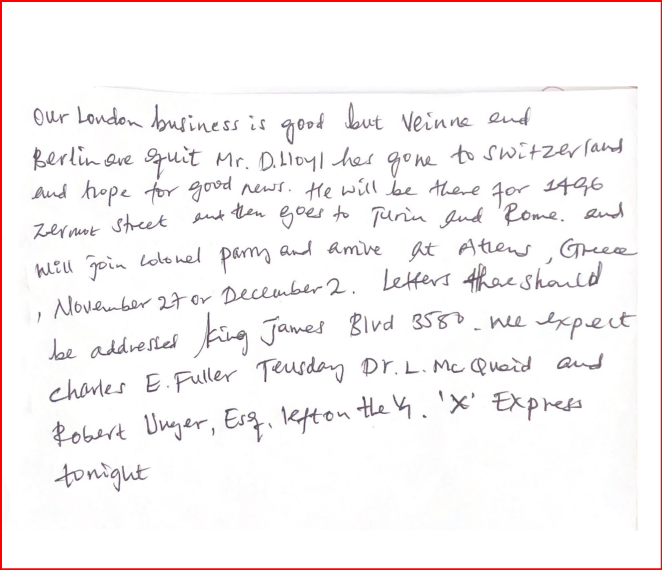 Our London business is good but Veinna and
Berlin are quit Mr. D. Lloyl has gone to switzerland
and hope for good news. He will be there for 1496
zermot street and then goes to Turin and Rome. and
will join colonel parry and arrive at Atiens, Greece
, November 27 or December 2. Letters there should
be addresses king James Blvd 3580. we expect
charles E. Fuller Teusday Dr. L. Mc Quaid and
Robert Unger, Esq. left on the 'X' Express
tonight